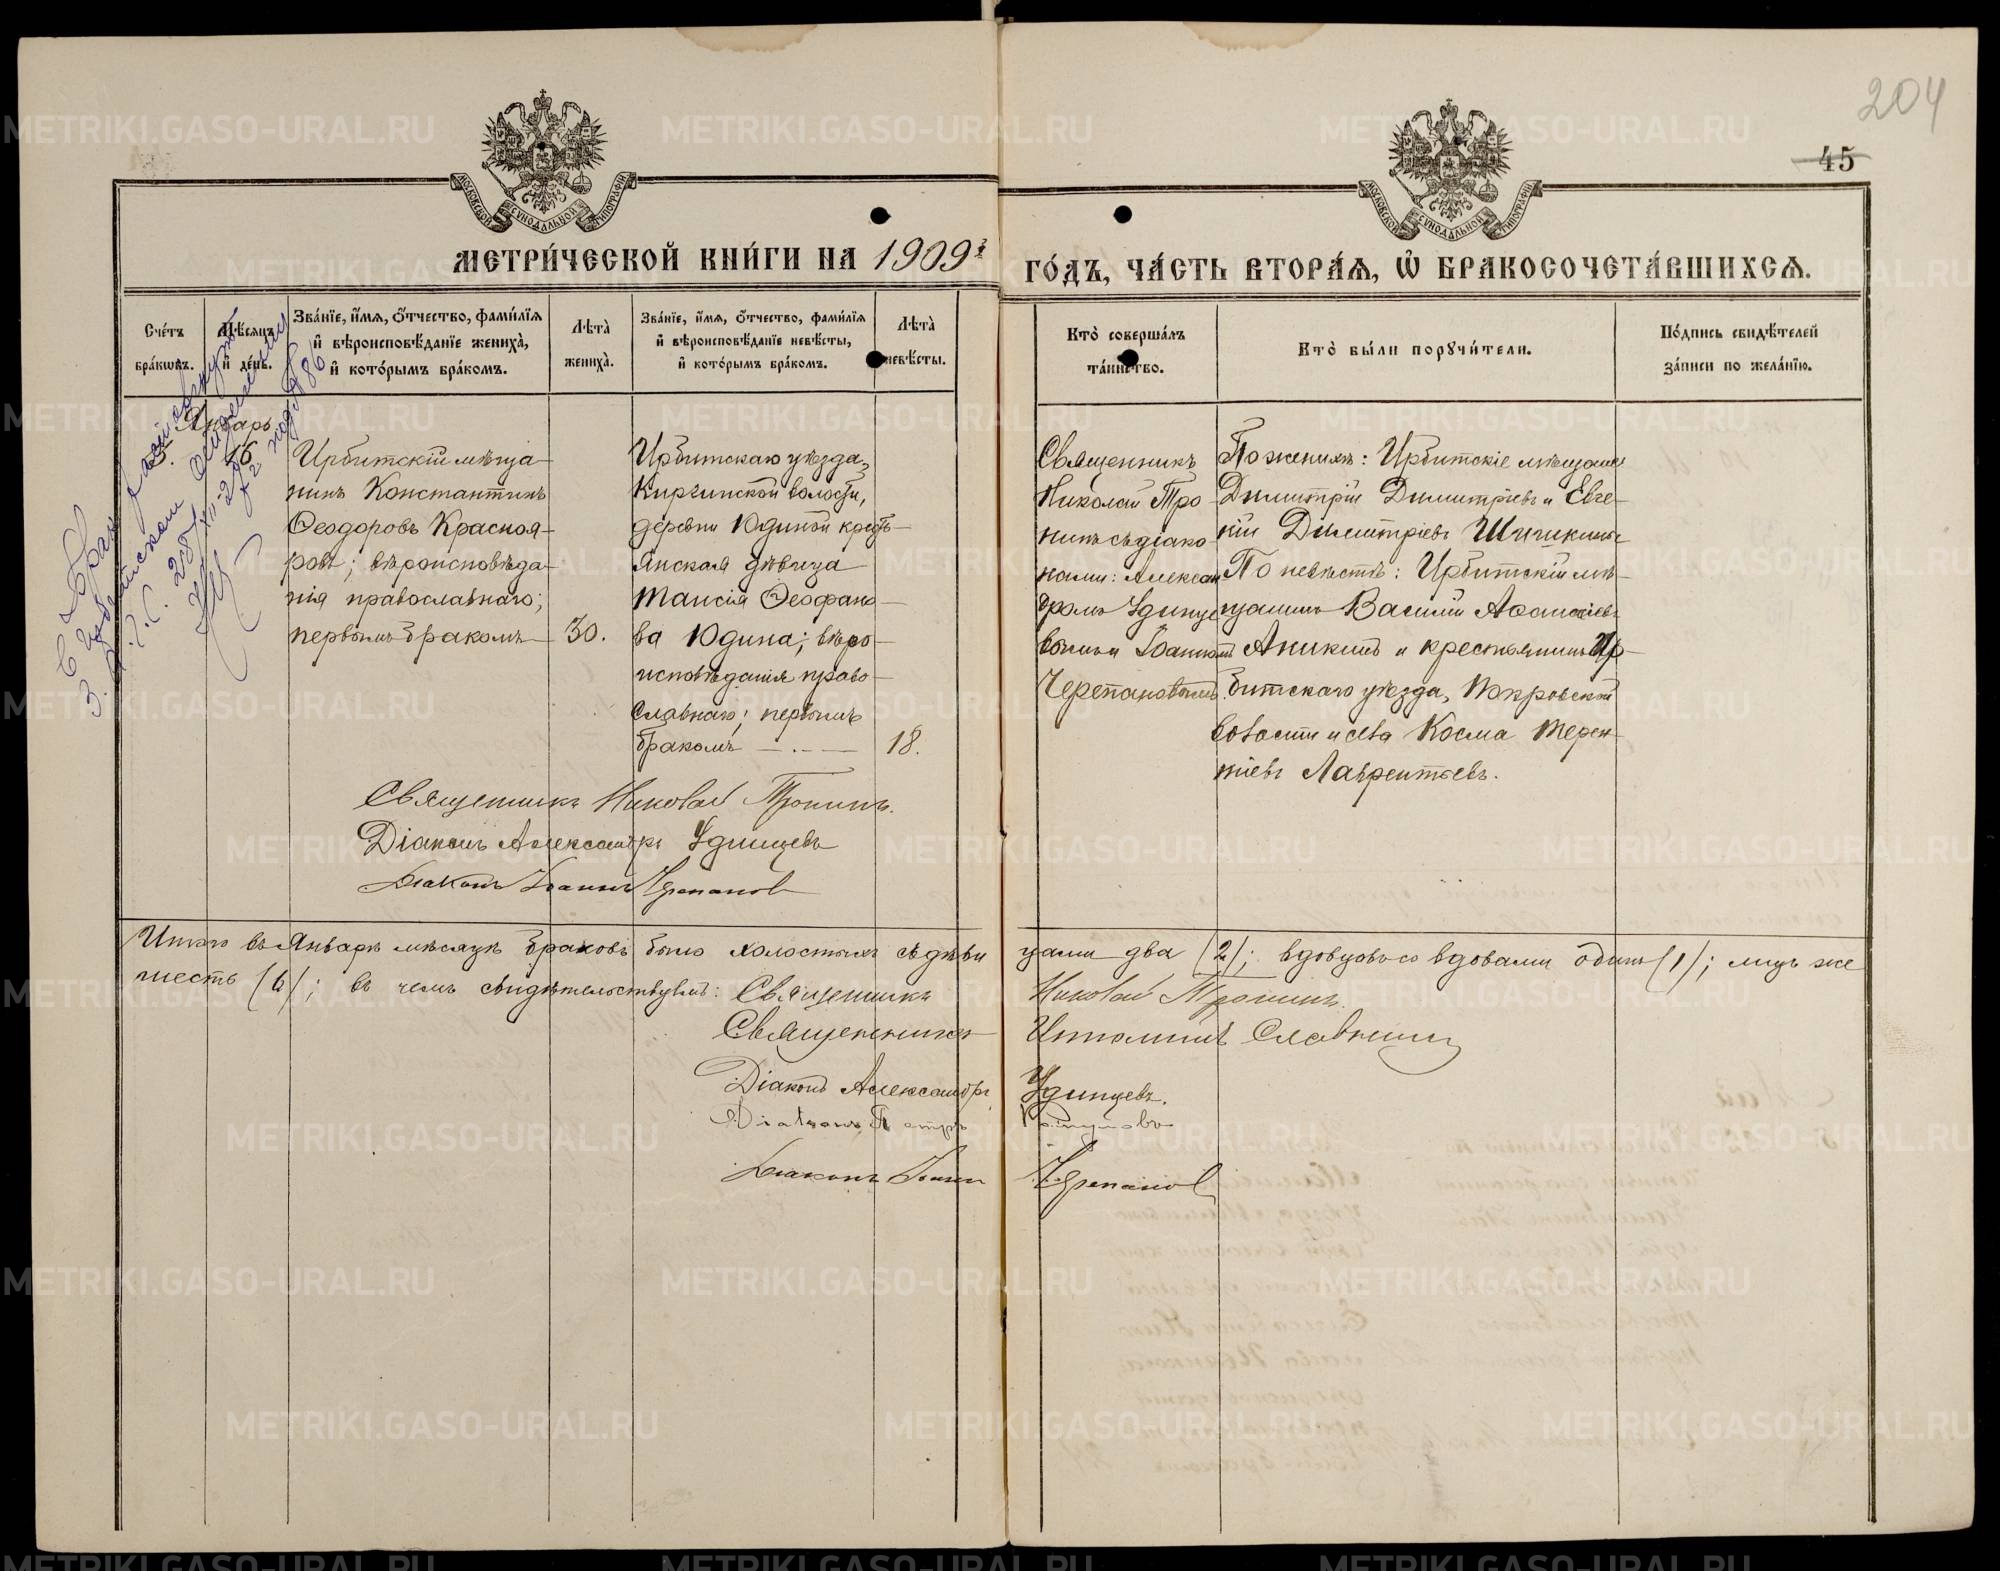 204
45
МОСКОВСКОЙ СѴНОДАЛЬНОЙ ТИПОГРАФІИ
МОСКОВСКОЙ СѴНОДАЛЬНОЙ ТИПОГРАФІИ
МЕТРИ́ЧЕСКОЙ КНИ́ГИ НА 1909 г
ГО́ДЪ, ЧА́СТЬ ВТОРА́Ѧ, Ѽ БРАКОСОЧЕТА́ВШИХСѦ.
Сче́тъ бра́кѡвъ.
Мѣ́сѧцъ и҆ де́нь.
Зва́нїе, и҆́мѧ, ѻ҆́тчество, фами́лїѧ и҆ вѣроисповѣ́данїе жениха̀, и҆ кото́рымъ бра́комъ.
Лѣ́та жениха̀.
Зва́нїе, и҆́мѧ, ѻ҆́тчество, фами́лїѧ и҆ вѣроисповѣ́данїе невѣ́сты, и҆ кото́рымъ бра́комъ.
Лѣ́та невѣ́сты.
Кто̀ соверша́лъ та́инство.
Кто̀ бы́ли порꙋчи́тели.
По́дпись свидѣ́телей за́писи по жела́нїю.
Январь
3.
16
Ирбитскій мѣща-
нинъ Константинъ
Ѳеодоровъ Красноя-
ровъ; вѣроисповѣда-
нія православнаго;
первымъ бракомъ
30.
Ирбитскаго уѣзда,
Киргинской волости,
деревни Юдиной кресть-
янская дѣвица
Таисія Ѳеофано-
ва Юдина; вѣро-
исповѣданія право-
славнаго; первымъ
бракомъ — . —
18.
Священникъ
Николай Тро-
нинъ съ діако-
нами: Алексан
дромъ Удинце
вымъ и Іоанномъ
Черепановымъ.
По женихѣ: Ирбитскіе мѣщане
Димитрій Димитріевъ и Евге-
ній Димитріевъ Шишкины.
По невѣстѣ: Ирбитскій мѣ-
щанинъ Василій Аѳанасіевъ
Аникинъ и крестьянинъ Ир-
битскаго уѣзда, Покровской
волости и села Косма Терен-
тіевъ Лаврентьевъ.
Священникъ Николай Тронинъ.
Діаконъ Александръ Удинцевъ
Діаконъ Іоаннъ Черепановъ
Итого въ Январѣ мѣсяцѣ браковъ было холостыхъ съ дѣви
цами два (2); вдовцовъ со вдовами одинъ (1); лицъ же
шесть (6); въ чемъ свидѣтельствуемъ: Священникъ
Николай Тронинъ.
Священникъ
Діаконъ Александръ
Удинцевъ.
Діаконъ Петръ
Діаконъ Іоаннъ
Черепановъ
METRIKI.GASO-URAL.RU